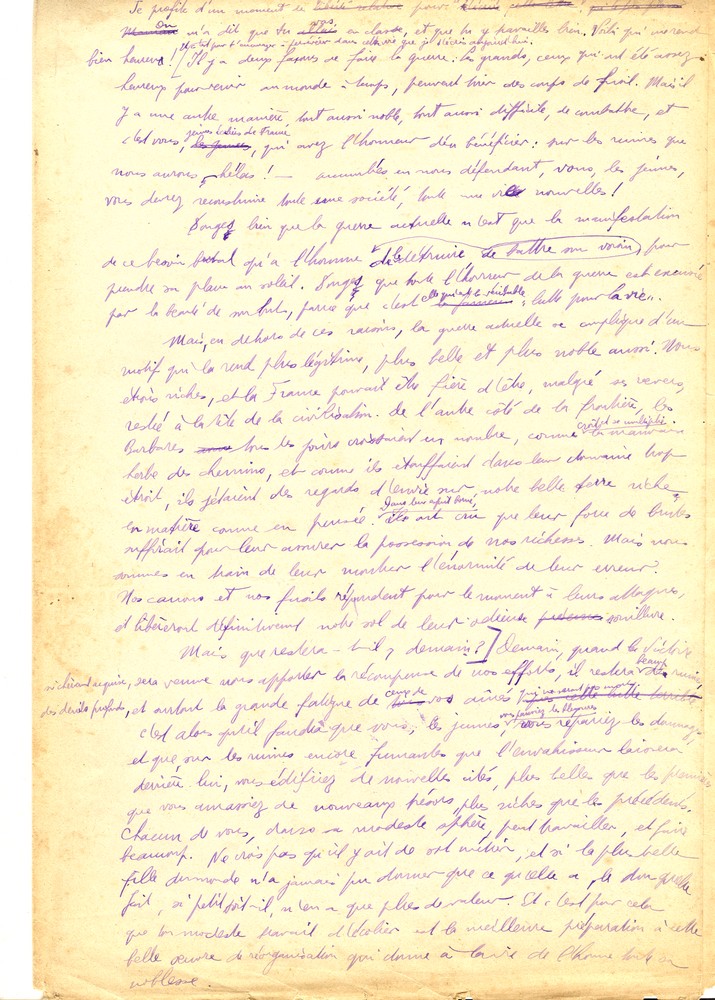 Je profite d'un moment de liberté relative pour
On m'a dit que vous étiez en classe, et que tu y travailles bien. Voilà qui me rend
bien heureux!
Il y a deux façons de faire la guerre: les grands, ceux qui ont été assez
heureux pour venir au monde à temps, peuvent tirer des coups de fusil. Mais il
y a une autre manière, tout aussi noble, tout aussi difficile, de combattre, et
jeunes écoliers de France
c'est vous, les jeunes, qui avez l'honneur d'en bénéficier: sur les ruines que
nous aurons, hélas! — accumulées en nous défendant, vous, les jeunes,
vous devez reconstruire toute une société, toute une vie nouvelles!
Songez bien que la guerre actuelle n'est que la manifestation
de ce besoin brutal qu'a l'homme de détruire de battre son voisin, pour
prendre sa place au soleil. Songez que toute l'horreur de la guerre est excusée
elle qui est la véritable
par la beauté de son but, parce que c'est la fameuse "lutte pour la vie".
Mais, en dehors de ces raisons, la guerre actuelle se complique d'un
motif qui la rend plus légitime, plus belle et plus noble aussi. Nous
étions riches, et la France pouvait être fière d'être, malgré ses revers,
restée à la tête de la civilisation. De l'autre côté de la frontière, les
croît et se multiplie
Barbares tous les jours croissaient en nombre, comme la mauvaise
herbe des chemins, et comme ils étouffaient dans leur domaine trop
étroit, ils jetaient des regards d'envie sur notre belle terre riche
Dans leur esprit borné,
en matière comme en pensée. ils ont cru que leur force de brutes
suffirait pour leur assurer la possession de nos richesses. Mais nous
sommes en train de leur montrer l'énormité de leur erreur.
Nos canons et nos fusils répondent pour le moment à leurs attaques,
et libèreront définitivement notre sol de leur odieuse présence souillure.
Mais que restera-t-il, demain? Demain, quand la Victoire
beaucoup
si chèrement acquise, sera venue nous apporter la récompense de nos efforts, il restera des ruines,
des deuils profonds, et surtout la grande fatigue de ceux de vos aînés
vous pansiez les blessures
c'est alors qu'il faudra que vous, les jeunes, vous répariez les dommages,
et que, sur les ruines encore fumantes que l'envahisseur laissera
derrière lui, vous édifiiez de nouvelles cités, plus belles que les premières
que vous amassiez de nouveaux trésors, plus riches que les précédents.
Chacun de vous, dans sa modeste sphère, peut travailler, et faire
beaucoup. Ne crois pas qu'il y ait de sot métier, et si la plus belle
fille du monde n'a jamais pu donner que ce qu'elle a, le don qu'elle
fait, si petit soit-il, n'en a que plus de valeur. Et c'est pour cela
que ton modeste travail d'écolier est la meilleure préparation à cette
belle œuvre de réorganisation qui donne à la vie de l'homme toute sa
noblesse.